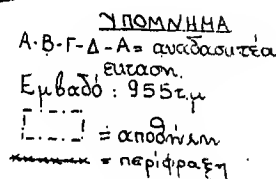 ΥΠΟΜΝΗΜΑ
Α-Β-Γ-Δ-Α = αναδασωτέα
έκταση.
Εμβαδό: 955τ.μ
= αποθήκη
= περίφραξη